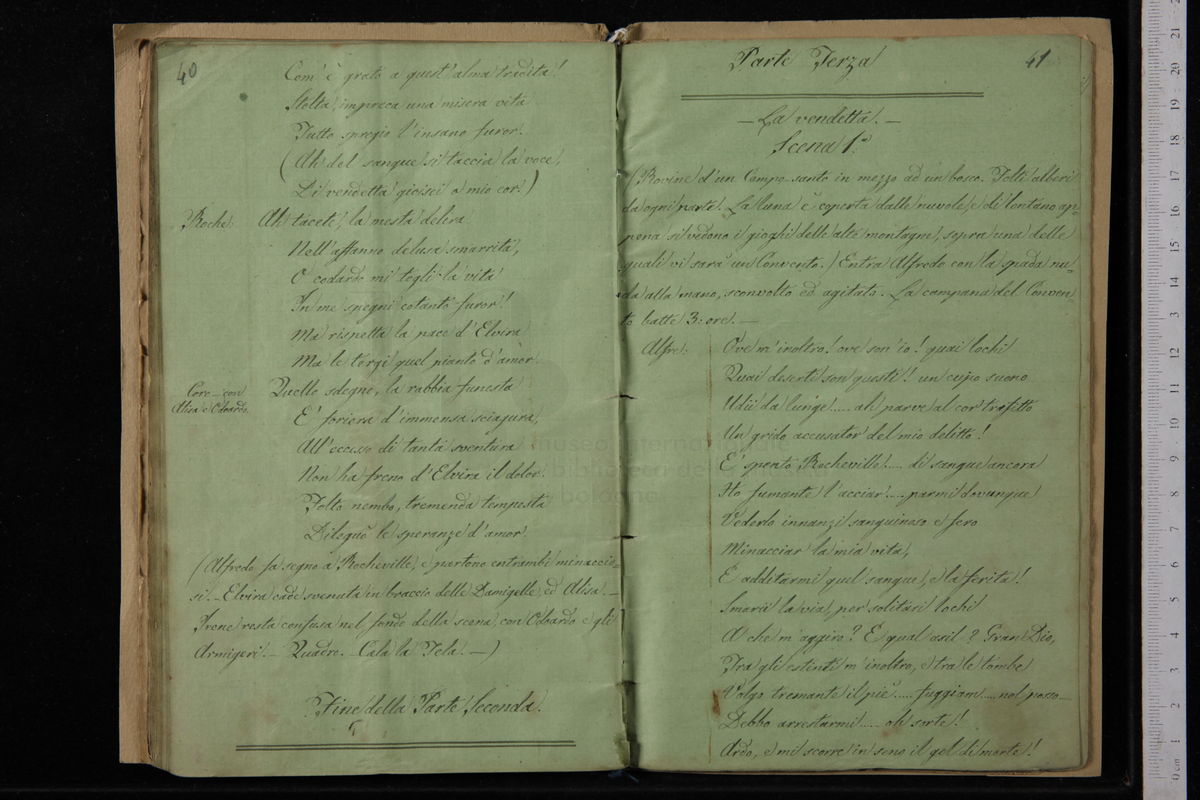 40
Com' è grato a quest' alma tradita!
Stolta, impreca una misera vita
Tutto spregio l'insano furor.
(Ah del sangue si taccia la voce,
Di vendetta gioisci o mio cor!)
Roche: Ah tacete, la mesta delira
Nell' affanno delusa smarrita,
O codardo mi togli la vita
In me spegni cotanto furor!
Ma rispetta la pace d' Elvira
Ma le tergi quel pianto d' amor.
Coro – con Alisa e Odoardo. Quello sdegno, la rabbia funesta
E' foriera d' immensa sciagura,
All' eccesso di tanta sventura
Non ha freno d' Elvira il dolor.
Folto nembo, tremenda tempesta
Dileguò le speranze d' amor.
(Alfredo fa segno a Rocheville, e partono entrambi minaccio-
si. – Elvira cade svenuta in braccio delle Damigelle, ed Alisa. –
Irene resta confusa nel fondo della scena, con Odoardo e gli
Armigeri. – Quadro. – Cala la Tela. –)
Fine della Parte Seconda.
41
Parte Terza
– La vendetta. –
Scena 1ª
(Rovine d'un Campo-santo in mezzo ad un bosco. Folti alberi
da ogni parte. La luna è coperta dalle nuvole, e di lontano ap-
pena si vedono i gioghi delle alte montagne, sopra una delle
quali vi sarà un Convento.) Entra Alfredo con la spada nu-
da alla mano, sconvolto ed agitato. La campana del Conven-
to batte 3: ore. –
Alfre: Ove m' inoltro! ove son' io! quai lochi
Quai deserti son questi! un cupo suono
Udii da lunge..... ah parve al cor trafitto
Un grido accusator del mio delitto!
E' spento Rocheville..... di sangue ancora
Ho fumante l' acciar..... parmi dovunque
Vederlo innanzi sanguinoso e fero
Minacciar la mia vita,
E additarmi quel sangue, e la ferita!
Smarii la via, per solitari lochi
A che m' aggiro? E qual asil? Gran Dio,
Tra gli estinti m' inoltro, e tra le tombe
Volgo tremante il piè..... fuggiam..... nol posso
Debbo arrestarmi..... oh sorte!
Ardo, e mi scorre in seno il gel di morte!